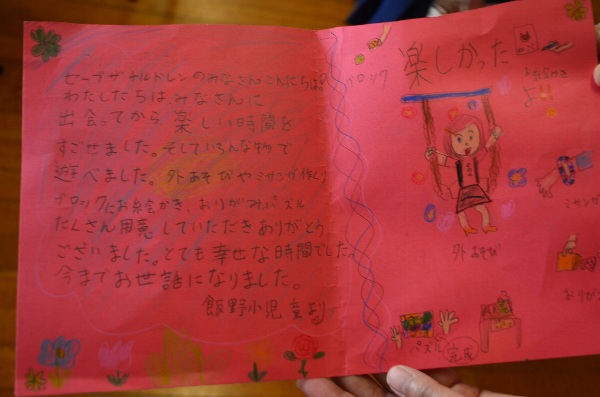 セーブザチルドレンのみなさんこんにちは。
わたしたちは、みなさんに
出会ってから楽しい時間を
すごせました。そしていろんな物で
遊べました。外あそびやミサンガ作くり
ブロックにお絵かき、おりがみパズル
たくさん用意していただきありがとう
ございました。とても幸せな時間でした。
今までお世話になりました。
飯野小児童より
楽しかった
ブロック
お絵かき
よ!!
ミサンガ
外あそび
おりが
パズル
完成